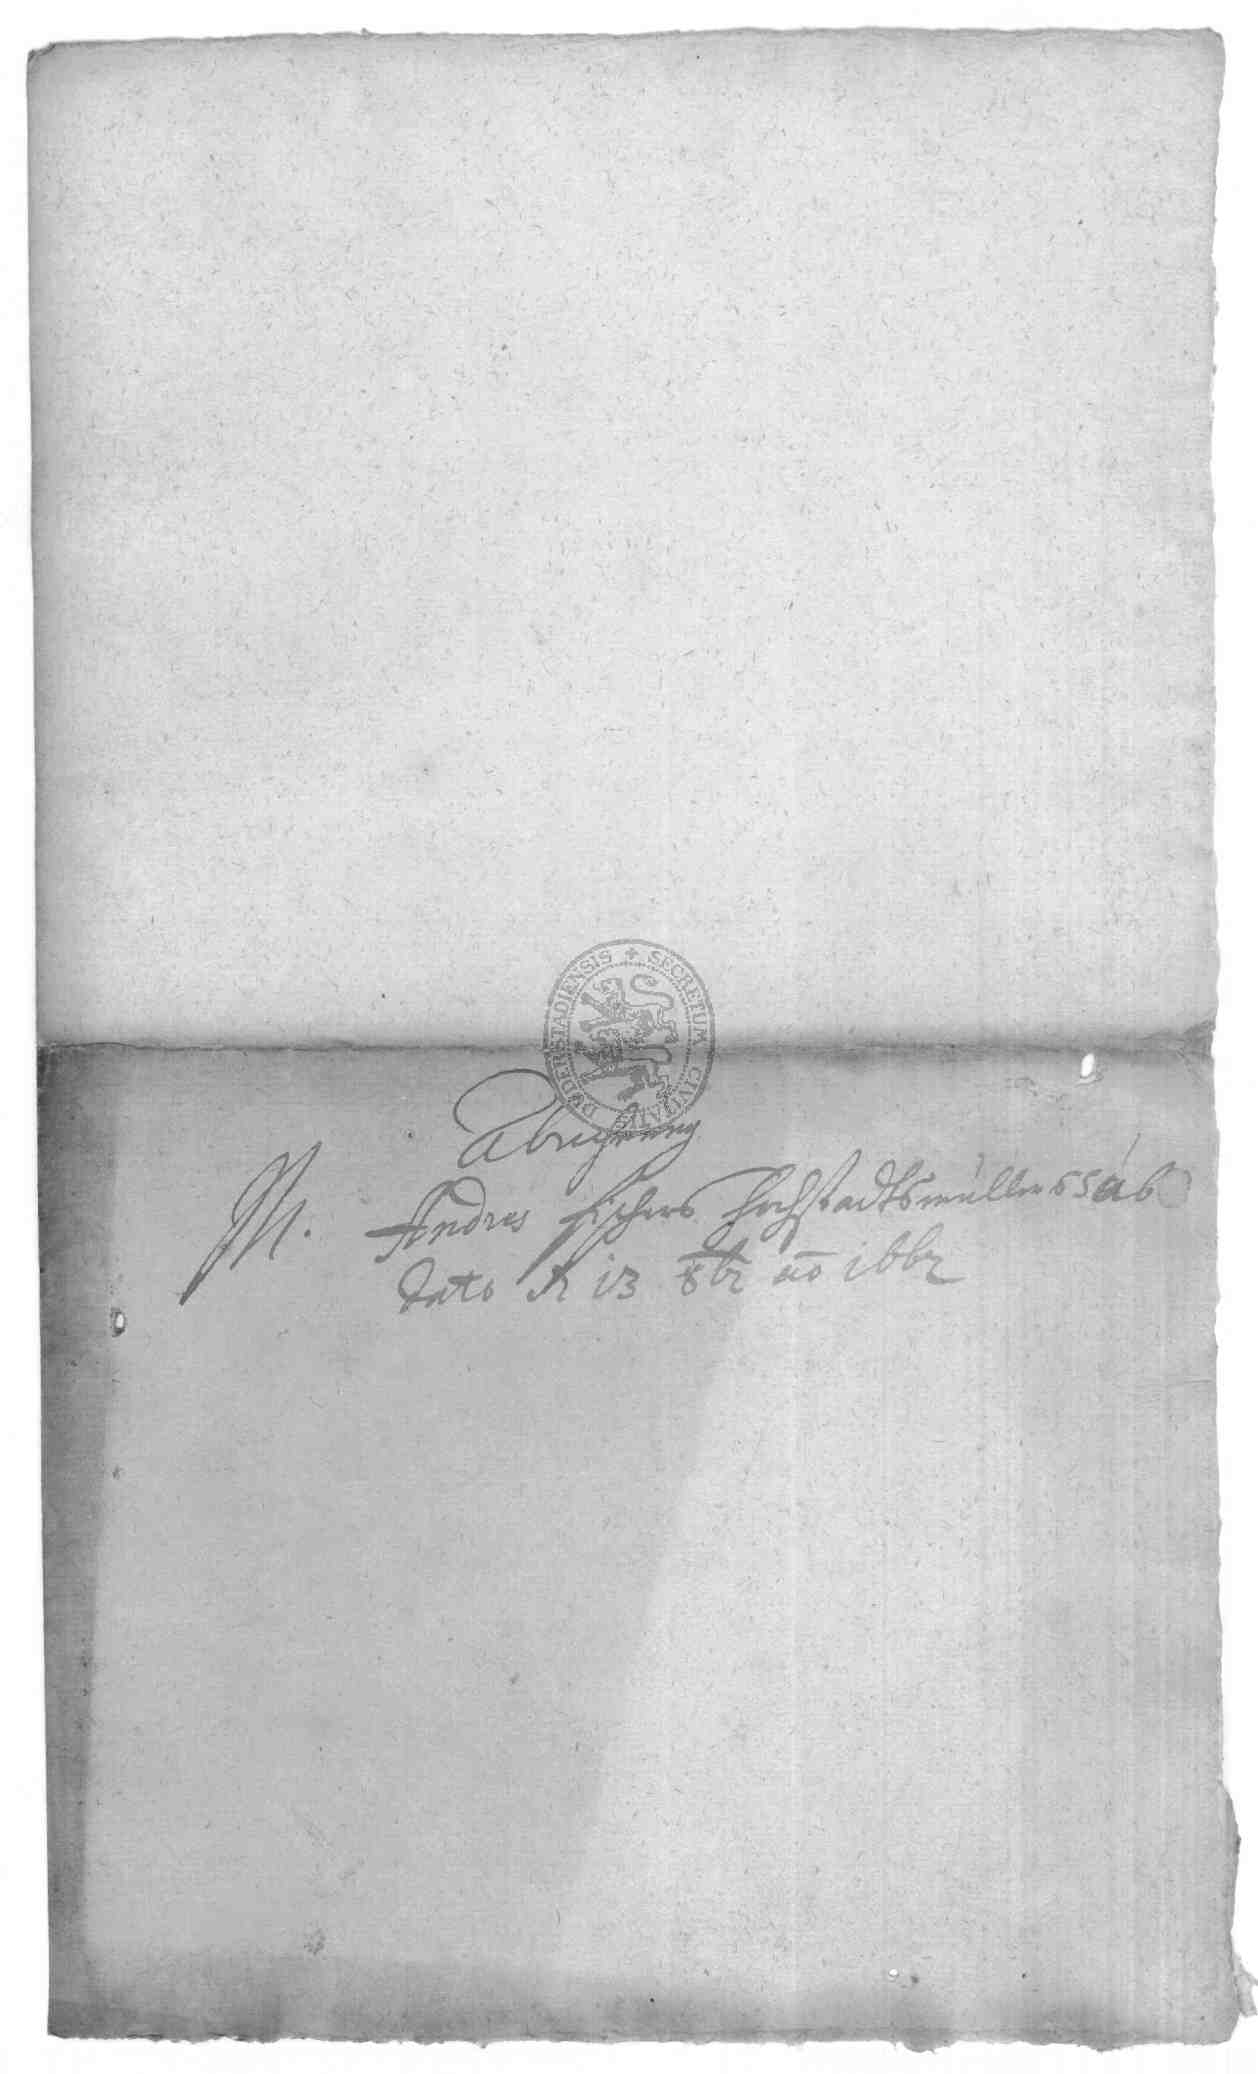 DUDERSTADIENSIS + SECRETUM CIVITATIS
Abrechnung
M. Andres Fischers Hochstadtsmüllers
dato d 13 8br ao 1662